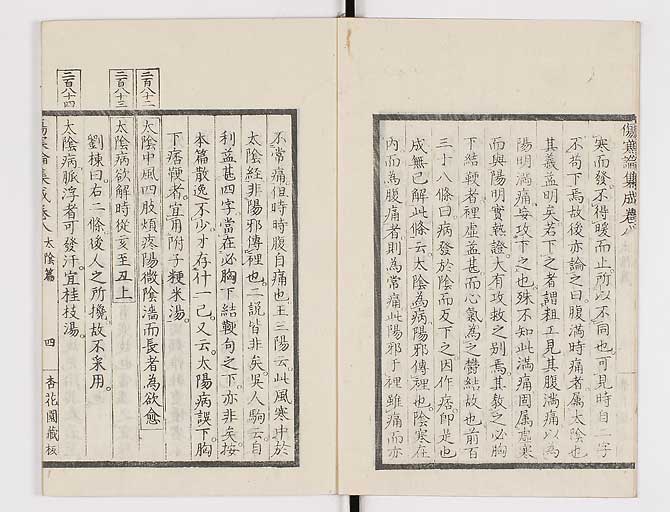 傷寒論集成卷八
寒而發不得暖而止所以不同也可見時自二字
不苟下焉故後亦論之曰腹滿時痛者属太陰也
其義益明矣若下之者謂粗工見其腹滿痛以為
陽明滿痛妄攻下之也殊不知此滿痛固属虛寒
而與陽明實熱證大有攻救之别焉其救之必胸
下結鞕者裡虛益甚而心氣為之欝結故也前百
三十八條曰病發於陰而反下之因作痞即是也
成無已解此條云太陰為病陽邪傳裡也陰寒在
內而為腹痛者則為常痛此陽邪于裡雖痛而亦
不常痛但時時腹自痛也王三陽云此風寒中於
太陰經非陽邪傳裡也二説皆非矣吳人駒云自
利益甚四字當在必胸下結鞕句之下亦非矣按
本篇散逸不少才存什一已又云太陽病誤下胸
下痞鞕者宜用附子粳米湯
二百八十二
太陰中風四肢煩疼陽微陰濇而長者為欲愈
二百八十三
太陰病欲解時從亥至丑上
劉棟曰右二條後人之所攙故不采用
二百八十四
太陰病脉浮者可發汗宜桂枝湯
傷寒論集成卷八 太陰篇 四 杏花園藏板